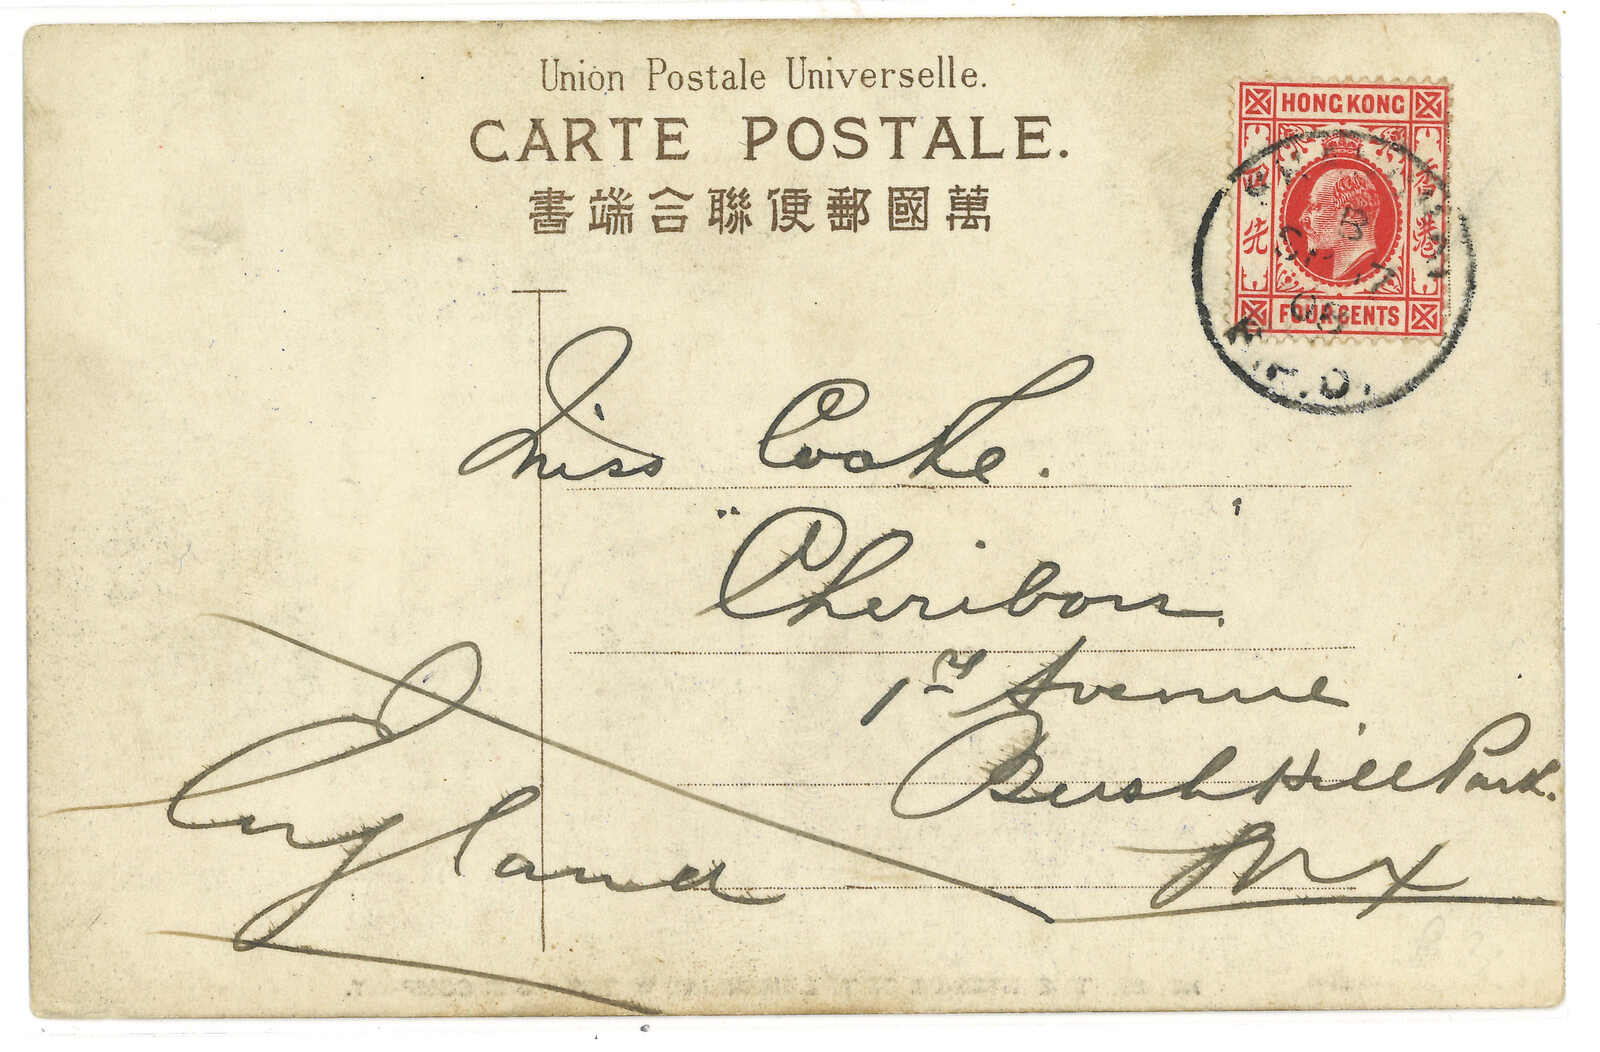 Union Postale Universelle.
CARTE POSTALE.
書端合聯便郵國萬
HONG KONG
香港
先
FOUR CENTS
B
08
Miss Cooke.
"Cheribon"
1st Avenue
Bush Hill Park.
Mx
England